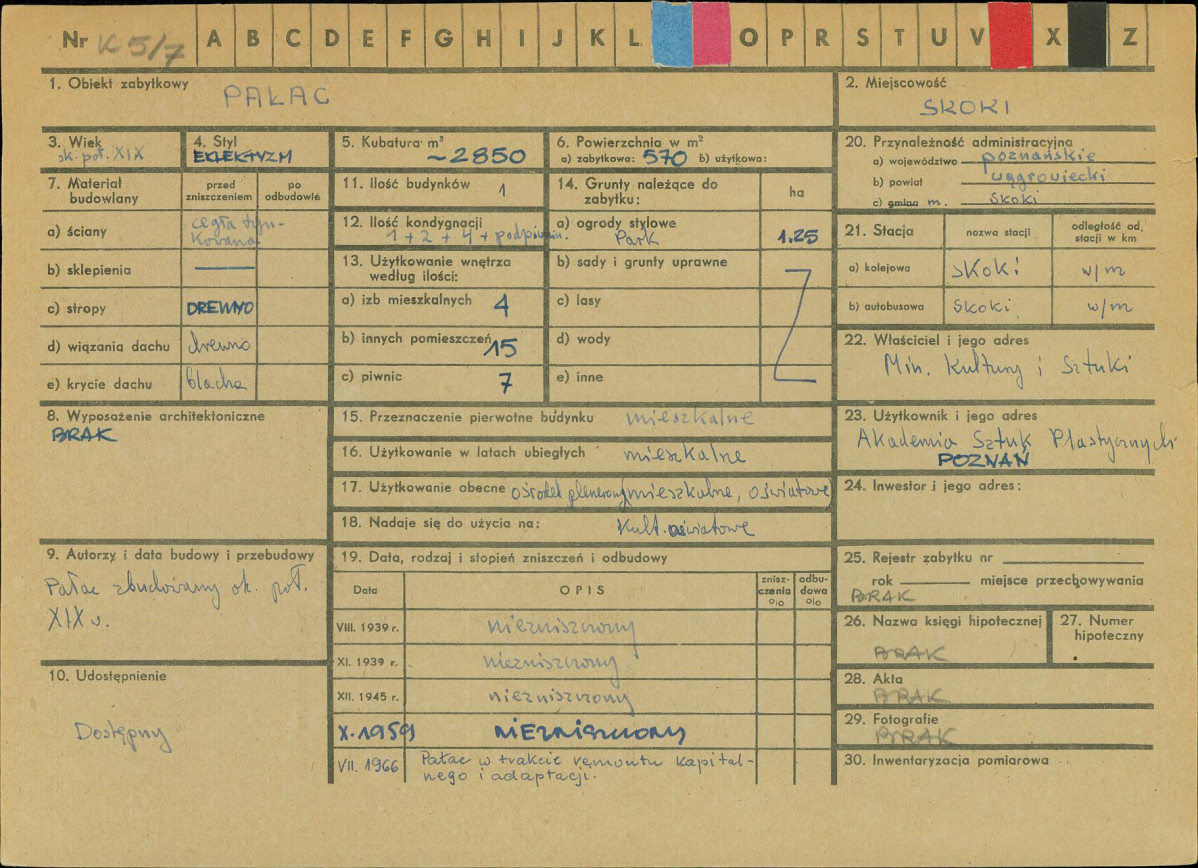 Nr K 5/7 A B C D E F G H I J K L O P R S T U V X Z
1. Obiekt zabytkowy
PAŁAC
2. Miejscowość
SKOKI
3. Wiek
ok. poł. XIX
4. Styl
EKLEKTYZM
5. Kubatura m³
~2850
6. Powierzchnia w m²
a) zabytkowa: 570 b) użytkowa:
7. Materiał budowlany
przed zniszczeniem
po odbudowie
a) ściany
cegła tyn-
kowana
b) sklepienia —
c) stropy DREWNO
d) wiązania dachu drewno
e) krycie dachu blacha
8. Wyposażenie architektoniczne
BRAK
9. Autorzy i data budowy i przebudowy
Pałac zbudowany ok. poł.
XIX w.
10. Udostępnienie
Dostępny
11. Ilość budynków 1
12. Ilość kondygnacji
1 + 2 + 4 + podpiwnin.
13. Użytkowanie wnętrza
według ilości:
a) izb mieszkalnych 4
b) innych pomieszczeń 15
c) piwnic 7
14. Grunty należące do
zabytku:
ha
a) ogrody stylowe
Park 1.25
b) sady i grunty uprawne
c) lasy
d) wody
e) inne
15. Przeznaczenie pierwotne budynku mieszkalne
16. Użytkowanie w latach ubiegłych mieszkalne
17. Użytkowanie obecne ośrodek plenerowy mieszkalne, oświatowe
18. Nadaje się do użycia na: kult. oświatowe
19. Data, rodzaj i stopień zniszczeń i odbudowy
Data
OPIS
znisz-
czenia
o/o
odbu-
dowa
o/o
VIII. 1939 r. niezniszczony
XI. 1939 r. niezniszczony
XII. 1945 r. niezniszczony
X. 1959 niEzniszczony
VII. 1966 Pałac w trakcie remontu kapital-
nego i adaptacji.
20. Przynależność administracyjna
a) województwo poznańskie
b) powiat wągrowiecki
c) gmina m. Skoki
21. Stacja
nazwa stacji
odległość od
stacji w km
a) kolejowa Skoki w/m
b) autobusowa Skoki w/m
22. Właściciel i jego adres
Min. Kultury i Sztuki
23. Użytkownik i jego adres
Akademia Sztuk Plastycznych
POZNAŃ
24. Inwestor i jego adres:
25. Rejestr zabytku nr
rok miejsce przechowywania
BRAK
26. Nazwa księgi hipotecznej
BRAK
27. Numer
hipoteczny
28. Akta
BRAK
29. Fotografie
BRAK
30. Inwentaryzacja pomiarowa